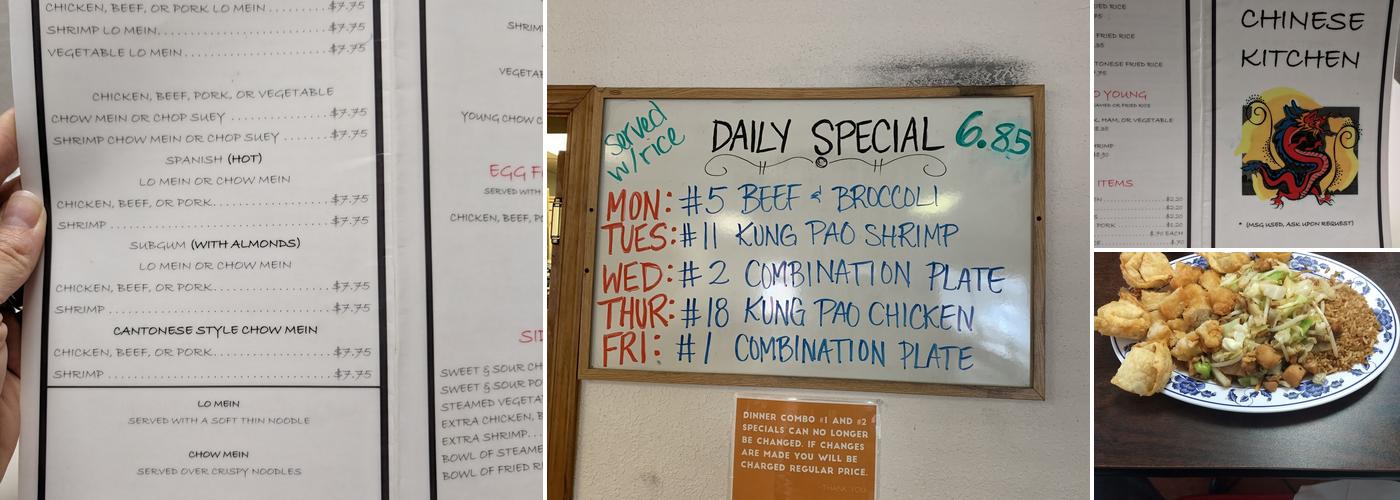 CHICKEN, BEEF, OR PORK LO MEIN $7.75
SHRIMP LO MEIN $7.75
VEGETABLE LO MEIN $7.75
CHICKEN, BEEF, PORK, OR VEGETABLE
CHOW MEIN OR CHOP SUEY $7.75
SHRIMP CHOW MEIN OR CHOP SUEY $7.75
SPANISH (HOT)
LO MEIN OR CHOW MEIN
CHICKEN, BEEF, OR PORK $7.75
SHRIMP $7.75
SUBGUM (WITH ALMONDS)
LO MEIN OR CHOW MEIN
CHICKEN, BEEF, OR PORK $7.75
SHRIMP $7.75
CANTONESE STYLE CHOW MEIN
CHICKEN, BEEF, OR PORK $7.75
SHRIMP $7.75
LO MEIN
SERVED WITH A SOFT THIN NOODLE
CHOW MEIN
SERVED OVER CRISPY NOODLES
YOUNG CHOW
EGG
SERVED WITH
CHICKEN, BEEF,
SWEET & SOUR
SWEET & SOUR
STEAMED
EXTRA CHICKEN,
EXTRA SHRIMP
BOWL OF
BOWL OF FRIED
Served
w/rice
DAILY SPECIAL 6.85
MON: #5 BEEF & BROCCOLI
TUES: #11 KUNG PAO SHRIMP
WED: #2 COMBINATION PLATE
THUR: #18 KUNG PAO CHICKEN
FRI: #1 COMBINATION PLATE
DINNER COMBO #1 AND #2
SPECIALS CAN NO LONGER
BE CHANGED. IF CHANGES
ARE MADE YOU WILL BE
CHARGED REGULAR PRICE.
THANK YOU
FRIED RICE
FRIED RICE
FRIED RICE
YOUNG
OR FRIED RICE
HAM, OR VEGETABLE
ITEMS
$2.20
$2.20
PORK $1.20
$.70 EACH
CHINESE
KITCHEN
* (MSG USED, ASK UPON REQUEST)